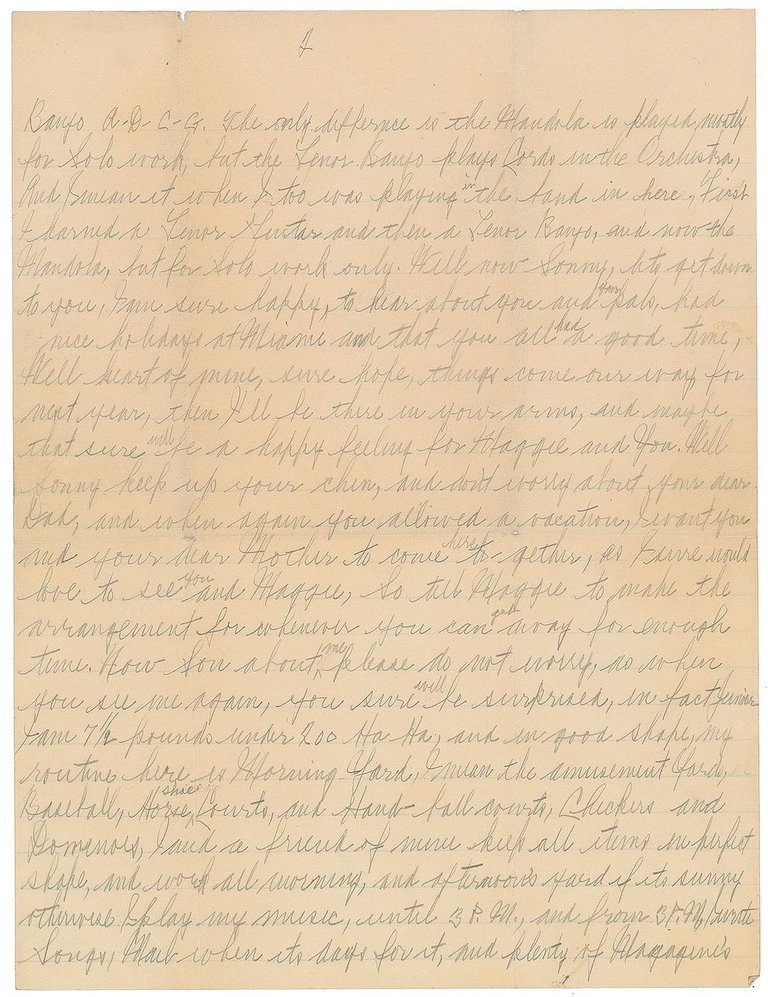 2
Banjo A-D-C-G. The only differnce is the Mandola is played, mostly
for Solo work, but the Tenor Banjo plays Cords in the Orchestra,
And I mean it when I too was playing in the band in here, First
I learned a Tenor Guitar and then a Tenor Banjo, and now the
Mandola, but for Solo work only. Well now Sonny, lets get down
to you, I am sure happy, to hear about you and your pals, had
nice holidays at Miami and that you all had a good time,
Well heart of mine, sure hope, things come our way for
next year, then I'll be there in your arms, and maybe
that sure will be a happy feeling for Maggie and You. Well
Sonny keep up your chin, and don't worry about your dear
Dad, and when again you allowed a vacation, I want you
and your dear Mother to come here to-gether, as I sure would
love to see you and Maggie, So tell Maggie to make the
arrangement for whenever you can get away for enough
time. Now Son about me, please do not worry, as when
you see me again, you sure will be surprised, in fact Junior
I am 7½ pounds under 200 Ha Ha, and in good shape, my
routine here is Morning Yard, I mean the amusement Yard,
Baseball, Horse shoe Courts, and Hand-ball courts, Checkers and
Dominoes, I and a friend of mine keep all items in perfect
shape, and work all morning, and afternoon's yard if its sunny
otherwise I play my music, until 3 P.M., and from 3 P.M. I write
Songs, Mail when its days for it, and plenty of Magagine's